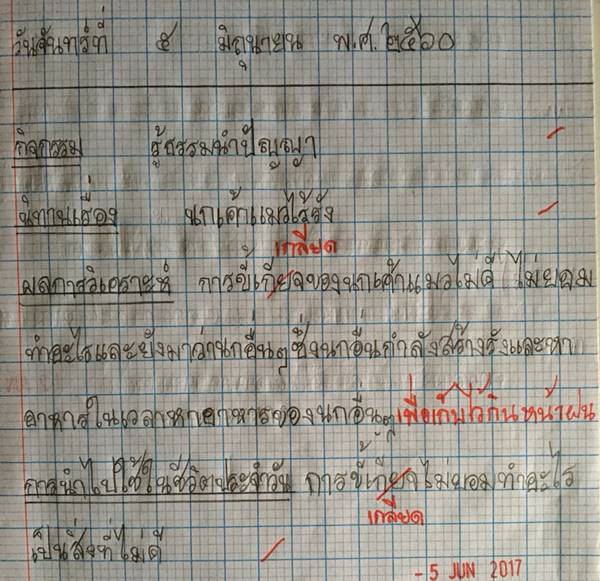 วันจันทร์ที่ ๕ มิถุนายน พ.ศ. ๒๕๖๐
กิจกรรม รู้ธรรมนำปัญญา
นิทานเรื่อง นกเค้าแมวไร้รัง
เกลียด
ผลการวิเคราะห์ การขี้เกียจของนกเค้าแมวไม่ดี ไม่ยอม
ทำอะไรและยังมาว่านกอื่นๆซึ่งนกอื่นกำลังสร้างรังและหา
อาหารในเวลาหาอาหารของนกอื่นๆเพื่อเก็บไว้กินหน้าฝน
การนำไปใช้ในชีวิตประจำวัน การขี้เกียจไม่ยอมทำอะไร
เกลียด
เป็นสิ่งที่ไม่ดี
- 5 JUN 2017